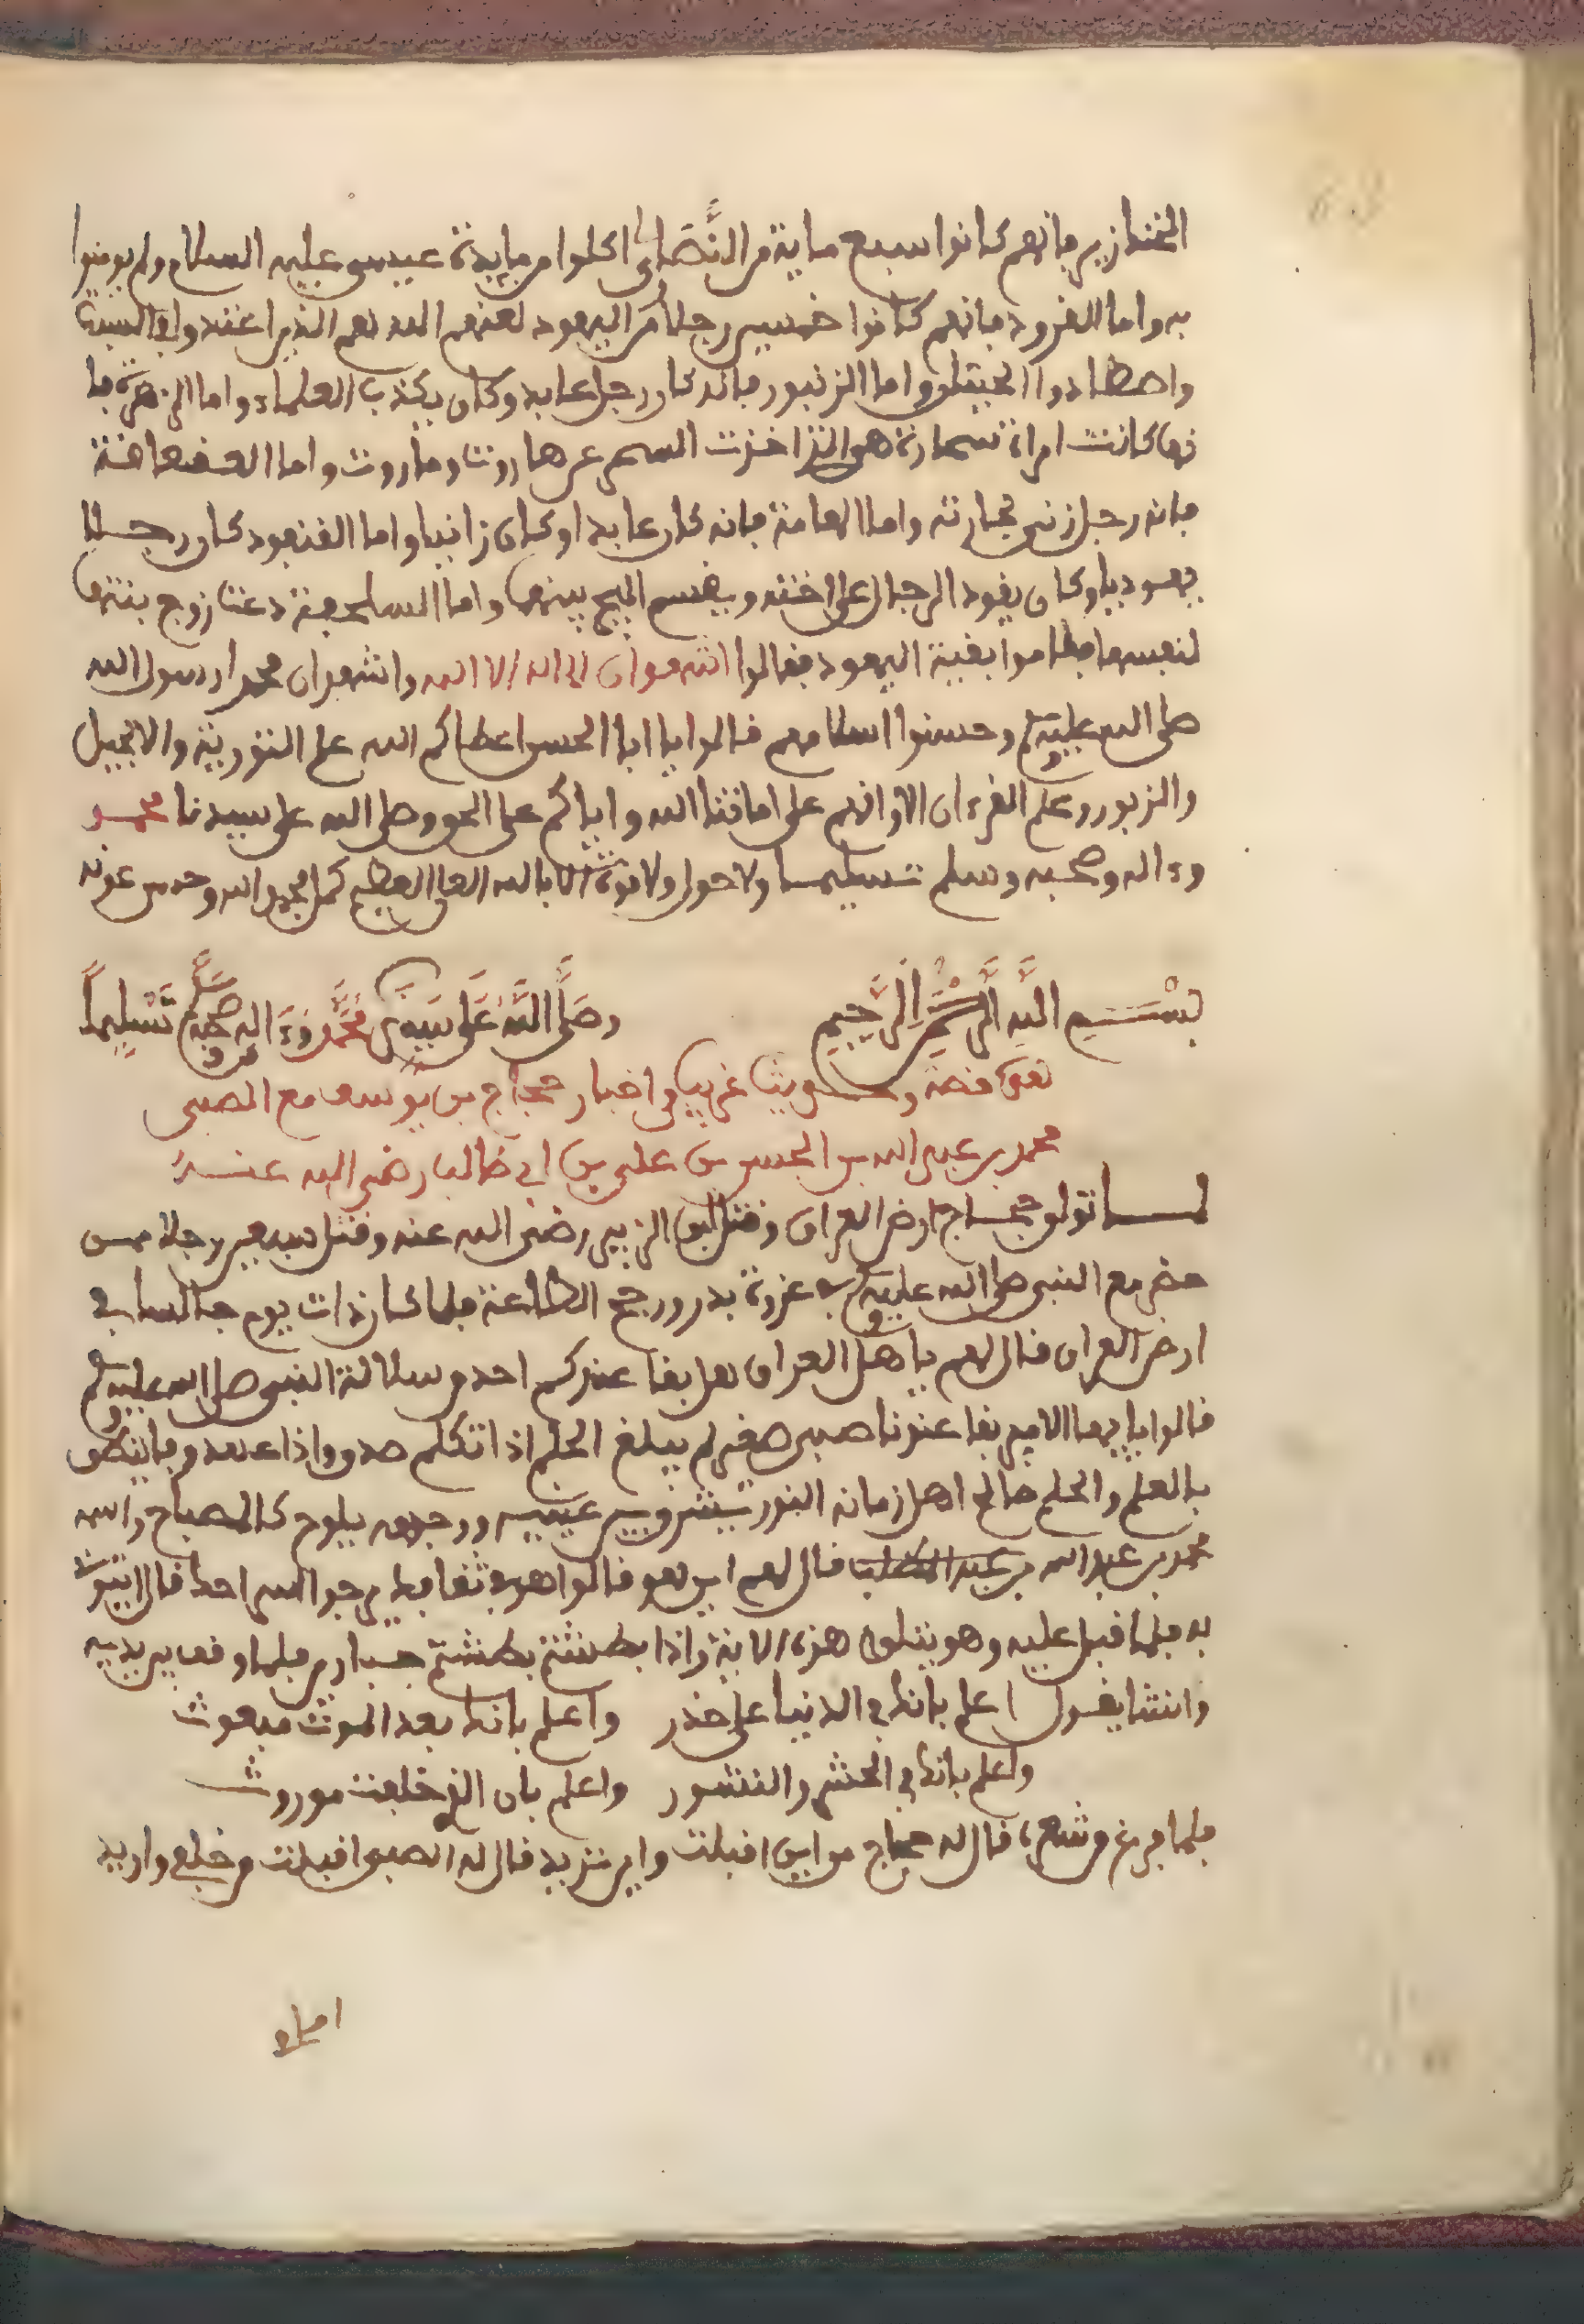 الخنازير فانهم كانوا سبع ماية من النَّصَارى اكلوا من مايدة عيسى عليه السلام ولم يومنوا
به واما القرود فانهم كانوا خمسين رجلا من اليهود لعنهم الله نعم الذين اعتدوا في السبت
واصطادوا الحيتان واما الزنبور فانه كان رجل عابد وكان يكذب العلماء واما الزهرة فا
نها كانت امراة سحارة هي التي اخذت السحر عن هاروت وماروت واما العضعاضة
فانه رجل زنى بجارته واما الهامة فانه كان عابدا وكان زانيا واما القنفود كان رجلا
يهوديا وكان يقود الرجال على اخته ويقسم البيع بينهما واما السلحفة دعت زوج بنتها
لنفسها فقاموا بقية اليهود فقالوا نشهدوا ان لا اله الا الله ونشهد ان محمدا رسول الله
صلى الله عليه وسلم وحسنوا اسلامهم قالوا يا ابا الحسن اعطاكم الله علم التورية والانجيل
والزبور وعلم القرءان الاوانهم على اماتنا الله واياكم على الحق وصلى الله على سيدنا محمد
وءاله وصحبه وسلم تسليما ولا حول ولا قوة الا بالله العلي العظيم كمل بحمد الله وحسن عونه
بِسْمِ اللَّهِ الرَّحْمَٰنِ الرَّحِيمِ وصَلَّى اللَّهُ عَلَى سَيِّدِنَا مُحَمَّدٍ وَءَاله وصحبه وسلم تَسْلِيماً
قصة وحديث غريب في اخبار حجاج بن يوسف مع الصبي
محمد بن عبد الله بن الحسن بن علي بن ابي طالب رضي الله عنه
لما تولى حجاج ارض العراق وقتل ابن الزبير رضي الله عنه وقتل سبعين رجلا ممن
حضر مع النبي صلى الله عليه وسلم في غزوة بدر ورجع الطاعة فلما كان ذات يوم جالسا في
ارض العراق قال لهم يا هل العراق هل بقا عندكم احد من سلالة النبي صلى الله عليه وسلم
قالوا يا ايها الامير بقا عندنا صبي صغير لم يبلغ الحلم اذا تكلم صدق واذا عهد وفا ينطق
بالعلم والحلم صالح اهل زمانه النور يشرق بين عينيه ووجهه يلوح كالمصباح واسمه
محمد بن عبد الله بن عبد المطلب قال لهم اين هو قالوا هو في ثقاف لا يرجوا الله احدا قال ايتوني
به فلما اقبل عليه وهو يتلوا هذه الاية واذا بطشتم بطشتم جبارين فلما وقف بين يديه
وانشا يقول اعلم بانك في الدنيا على حذر واعلم بانك بعد الموت مبعوث
واعلم بانك في الحشر والنشور واعلم بان الذي خلفت موروث
فلما فرغ من شعره قال له حجاج من اين اقبلت واين تريد قال له الصبي اقبلت من خلفي واريد
امامي